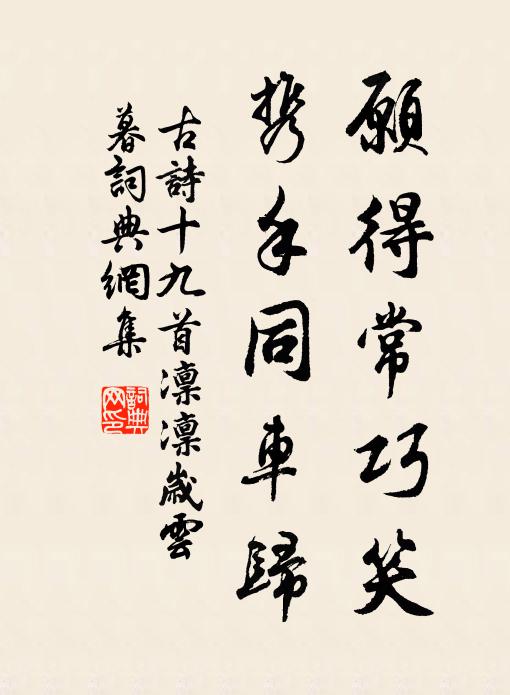 願得常巧笑
携手同車歸
古詩十九首凛凛歲雲
暮詞典網集
詞典
网印